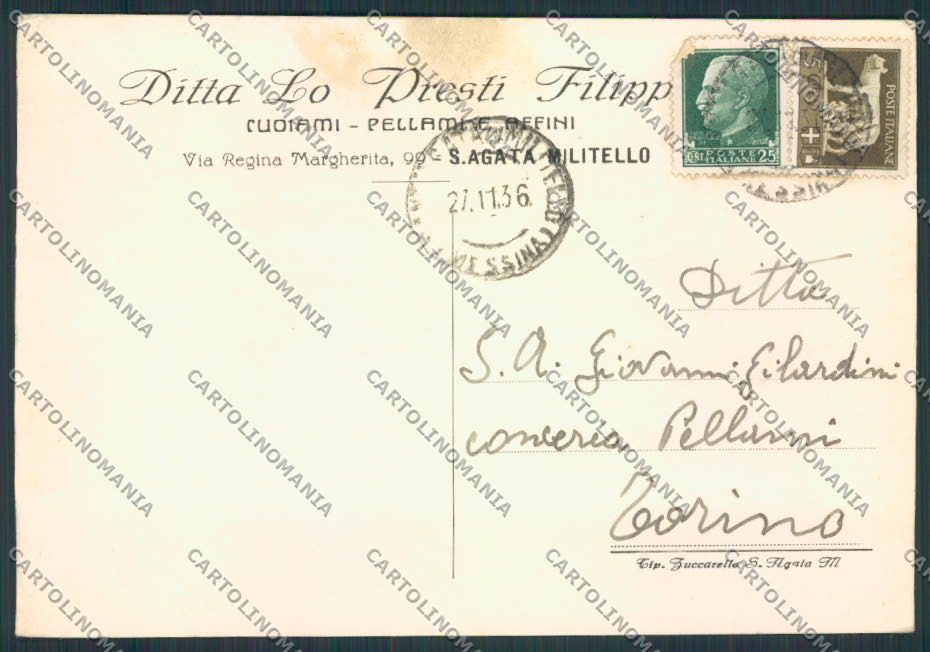 Ditta Lo Presti Filipp
CUOIAMI - PELLAMI E AFFINI
Via Regina Margherita, 99 S.AGATA MILITELLO
27.11.36
(MESSINA)
POSTE ITALIANE
CENT. 25
POSTE ITALIANE
MESSINA
Ditta
S. A. Giovanni Gilardini
conceria Pellami
Torino
Tip. Zuccarello S. Agata M
CARTOLINOMANIA